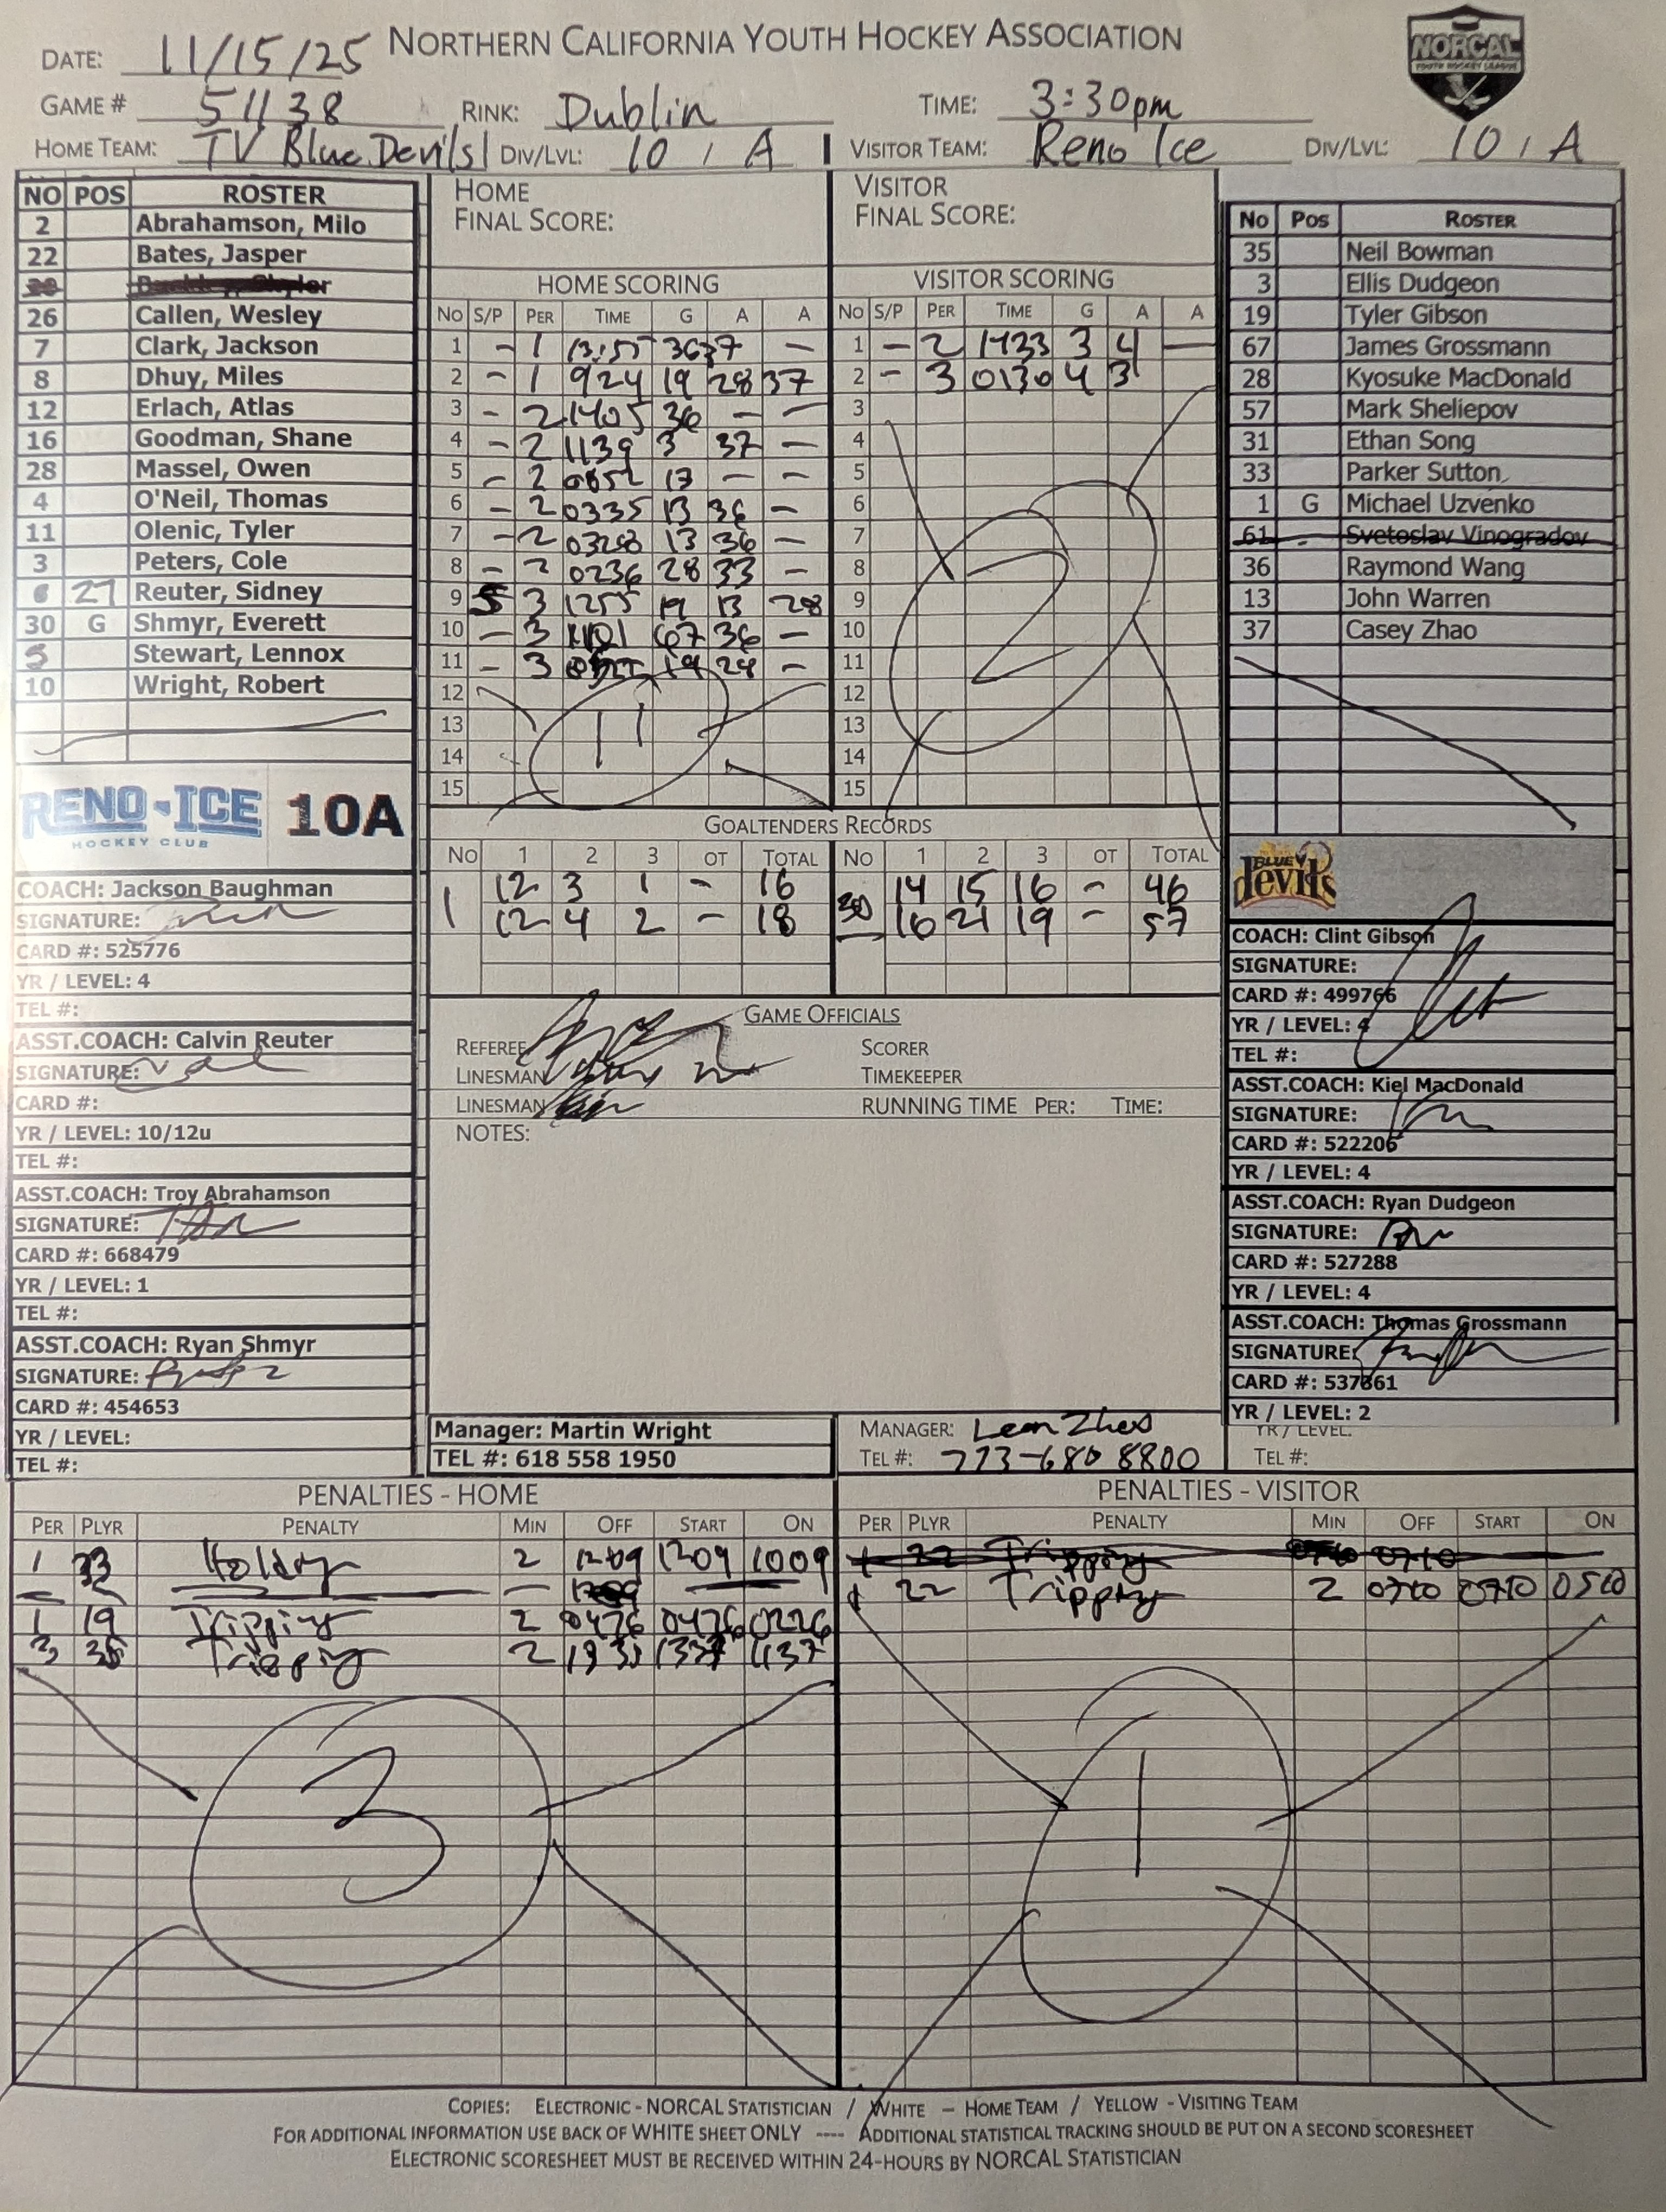 NORTHERN CALIFORNIA YOUTH HOCKEY ASSOCIATION
NORCAL
YOUTH HOCKEY LEAGUE
DATE: 11/15/25
GAME # 51138 RINK: Dublin TIME: 3:30pm
HOME TEAM: TV Blue Devils DIV/LVL: 10 / A VISITOR TEAM: Reno Ice DIV/LVL: 10 / A
NO POS ROSTER
2 Abrahamson, Milo
22 Bates, Jasper
26 Callen, Wesley
7 Clark, Jackson
8 Dhuy, Miles
12 Erlach, Atlas
16 Goodman, Shane
28 Massel, Owen
4 O'Neil, Thomas
11 Olenic, Tyler
3 Peters, Cole
27 Reuter, Sidney
30 G Shmyr, Everett
5 Stewart, Lennox
10 Wright, Robert
RENO ICE 10A
HOCKEY CLUB
COACH: Jackson Baughman
SIGNATURE:
CARD #: 525776
YR / LEVEL: 4
TEL #:
ASST.COACH: Calvin Reuter
SIGNATURE:
CARD #:
YR / LEVEL: 10/12u
TEL #:
ASST.COACH: Troy Abrahamson
SIGNATURE:
CARD #: 668479
YR / LEVEL: 1
TEL #:
ASST.COACH: Ryan Shmyr
SIGNATURE:
CARD #: 454653
YR / LEVEL:
TEL #:
HOME
FINAL SCORE:
HOME SCORING
NO S/P PER TIME G A A
1 - 1 13:55 36 37 -
2 - 1 924 19 28 37
3 - 2 1405 36 - -
4 - 2 1139 3 37 -
5 - 2 0852 13 - -
6 - 2 0335 13 36 -
7 - 2 13 36 -
8 - 2 0236 28 33 -
9 S 3 1255 19 13 28
10 - 3 67 36 -
11 - 3 19 28 -
12
13
14
15
11
VISITOR
FINAL SCORE:
VISITOR SCORING
NO S/P PER TIME G A A
1 - 2 1433 3 4 -
2 - 3 0130 4 3
3
4
5
6
7
8
9
10
11
12
13
14
15
2
GOALTENDERS RECORDS
NO 1 2 3 OT TOTAL NO 1 2 3 OT TOTAL
1 12 3 1 - 16 30 14 15 16 - 46
12 4 2 - 18 16 21 19 - 57
GAME OFFICIALS
REFEREE SCORER
LINESMAN TIMEKEEPER
LINESMAN RUNNING TIME PER: TIME:
NOTES:
Manager: Martin Wright
TEL #: 618 558 1950
MANAGER: Leon Zhao
TEL #: 773-680 8800
No Pos ROSTER
35 Neil Bowman
3 Ellis Dudgeon
19 Tyler Gibson
67 James Grossmann
28 Kyosuke MacDonald
57 Mark Sheliepov
31 Ethan Song
33 Parker Sutton
1 G Michael Uzvenko
61 Svetoslav Vinogradov
36 Raymond Wang
13 John Warren
37 Casey Zhao
BLUE devils
COACH: Clint Gibson
SIGNATURE:
CARD #: 499766
YR / LEVEL: 4
TEL #:
ASST.COACH: Kiel MacDonald
SIGNATURE:
CARD #: 522206
YR / LEVEL: 4
ASST.COACH: Ryan Dudgeon
SIGNATURE:
CARD #: 527288
YR / LEVEL: 4
ASST.COACH: Thomas Grossmann
SIGNATURE:
CARD #: 537861
YR / LEVEL: 2
YR / LEVEL:
TEL #:
PENALTIES - HOME
PER PLYR PENALTY MIN OFF START ON
1 33 Holding 2 1209 1209 1009
1 19 Tripping 2 0426 0426 0226
3 36 Tripping 2 1337 1337 1137
3
PENALTIES - VISITOR
PER PLYR PENALTY MIN OFF START ON
1 22 Tripping 0710
1 22 Tripping 2 0710 0710 0510
1
COPIES: ELECTRONIC - NORCAL STATISTICIAN / WHITE – HOME TEAM / YELLOW - VISITING TEAM
FOR ADDITIONAL INFORMATION USE BACK OF WHITE SHEET ONLY ---- ADDITIONAL STATISTICAL TRACKING SHOULD BE PUT ON A SECOND SCORESHEET
ELECTRONIC SCORESHEET MUST BE RECEIVED WITHIN 24-HOURS BY NORCAL STATISTICIAN